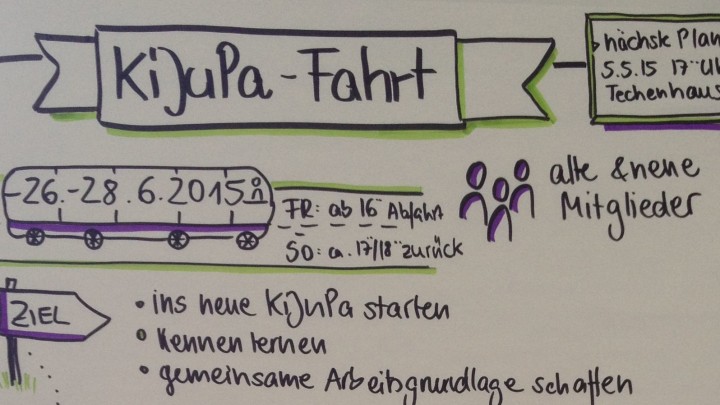 KiJuPa-Fahrt
nächste Plan
5.5.15 17°° Uh
Techenhaus
26.-28.6.2015
FR: ab 16°° Abfahrt
SO: ca. 17/18°° zurück
alte & neue
Mitglieder
ZIEL
• ins neue KiJuPa starten
• Kennen lernen
• gemeinsame Arbeitsgrundlage schaffen